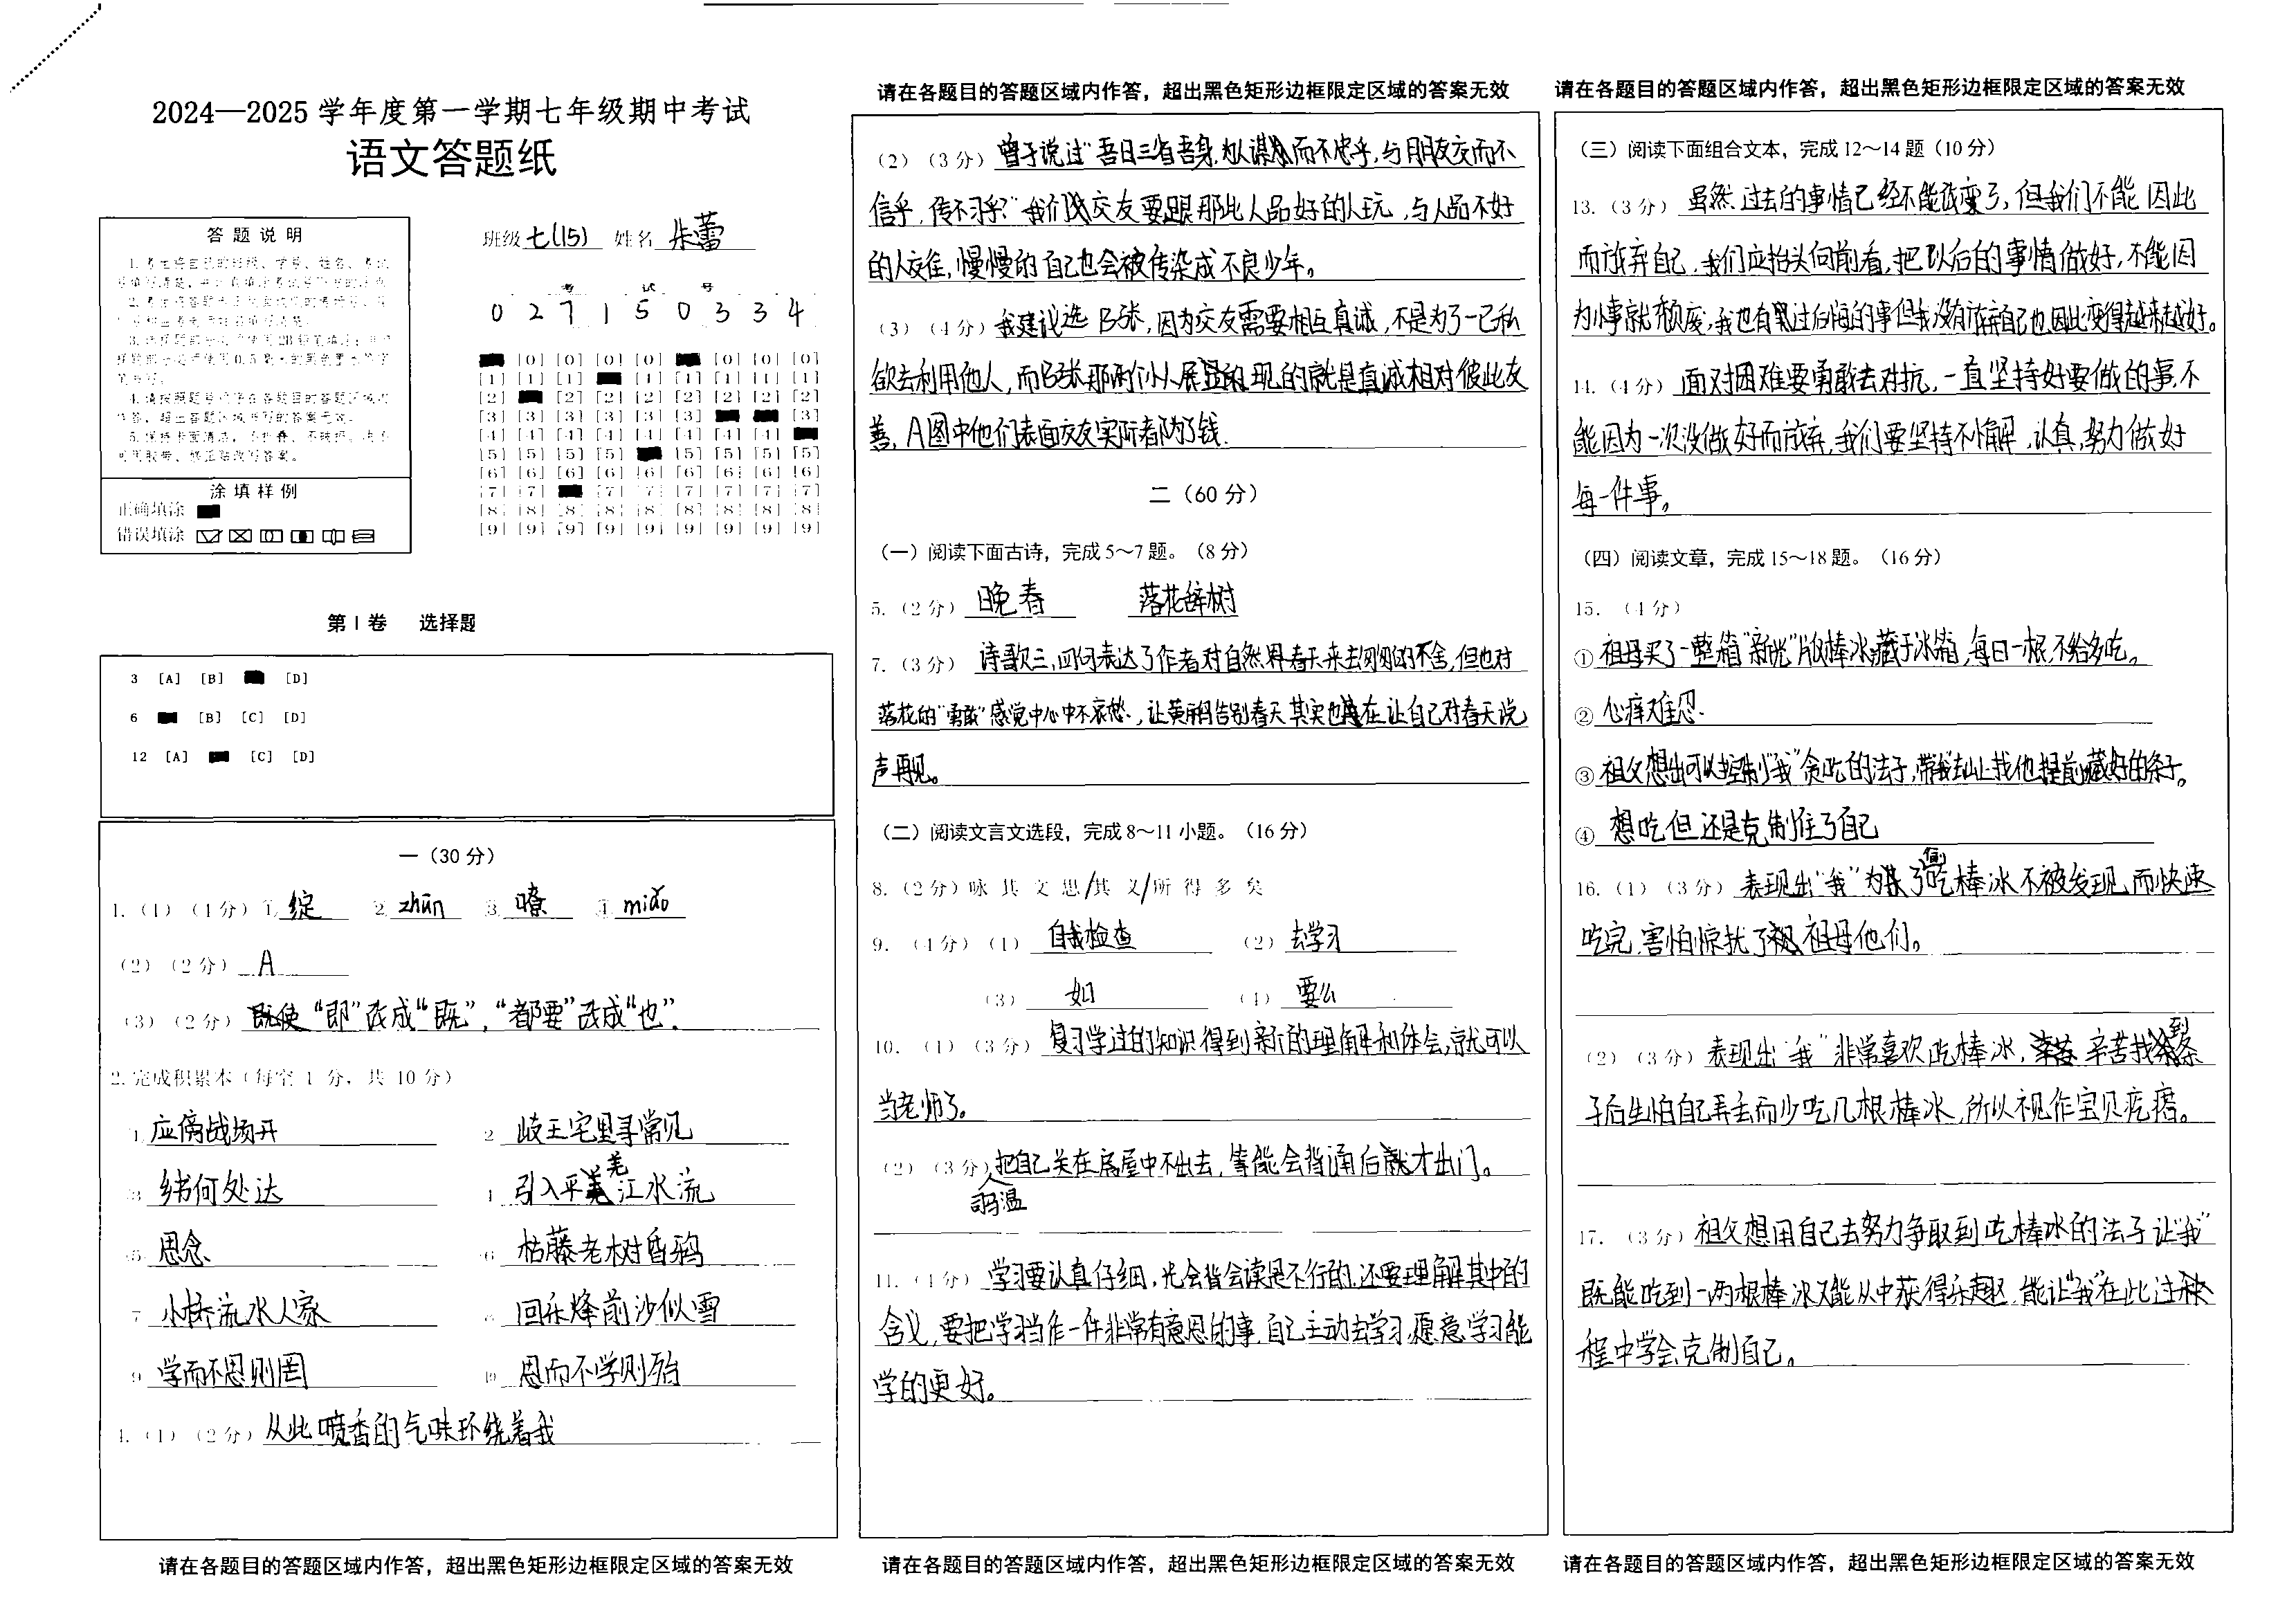 2024—2025学年度第一学期七年级期中考试
语文答题纸
答题说明
涂填样例
正确填涂
错误填涂
班级 七(15) 姓名 朱蕾
考试号
0 2 7 1 5 0 3 3 4
[0] [0] [0] [0] [0] [0] [0]
[1] [1] [1] [1] [1] [1] [1] [1]
[2] [2] [2] [2] [2] [2] [2] [2]
[3] [3] [3] [3] [3] [3] [3]
[4] [4] [4] [4] [4] [4] [4] [4]
[5] [5] [5] [5] [5] [5] [5] [5]
[6] [6] [6] [6] [6] [6] [6] [6] [6]
[7] [7] [7] [7] [7] [7] [7] [7]
[8] [8] [8] [8] [8] [8] [8] [8] [8]
[9] [9] [9] [9] [9] [9] [9] [9] [9]
第Ⅰ卷 选择题
3 [A] [B] [D]
6 [B] [C] [D]
12 [A] [C] [D]
一（30分）
1.（1）（4分）1. 绽 2. zhūn 3. 嘹 4. miǎo
（2）（2分） A
（3）（2分） “即”改成“既”，“都要”改成“也”.
2.完成积累本（每空 1 分，共 10 分）
1. 应傍战场开 2. 岐王宅里寻常见
3. 乡书何处达 4. 引入平羌江水流
5. 思念 6. 枯藤老树昏鸦
7. 小桥流水人家 8. 回乐烽前沙似雪
9. 学而不思则罔 10. 思而不学则殆
4.（1）（2分）从此喷香的气味环绕着我
请在各题目的答题区域内作答，超出黑色矩形边框限定区域的答案无效
请在各题目的答题区域内作答，超出黑色矩形边框限定区域的答案无效
（2）（3分）曾子说过“吾日三省吾身，为人谋而不忠乎，与朋友交而不
信乎，传不习乎？”我们交友要跟那些人品好的人玩，与人品不好
的人交往，慢慢的自己也会被传染成不良少年。
（3）（4分）我建议选B张，因为交友需要相互真诚，不是为了一己私
欲去利用他人，而B张那两个小人展现的就是真诚相对彼此友
善，A图中他们表面交友实际都为了钱.
二（60分）
（一）阅读下面古诗，完成5～7题。（8分）
5.（2分） 晚春 落花辞树
7.（3分） 诗歌三、四句表达了作者对自然界春天来去匆匆的不舍，但也对
落花的“勇敢”感觉中心中不哀愁，让黄鹂告别春天其实也是在让自己对春天说
声再见。
（二）阅读文言文选段，完成8～11小题。（16分）
8.（2分）咏 其 文 思/其 义/所 得 多 矣
9.（4分）（1） 自我检查 （2） 去学习
（3） 如 （4） 要么
10.（1）（3分）复习学过的知识得到新的理解和体会，就可以
当老师了。
（2）（3分）司马温人把自己关在房屋中不出去，等能会背诵后才出门。
11.（4分）学习要认真仔细，光会背会读是不行的，还要理解其中的
含义，要把学习当作一件非常有意思的事，自己主动去学习，愿意学习能
学的更好。
请在各题目的答题区域内作答，超出黑色矩形边框限定区域的答案无效
请在各题目的答题区域内作答，超出黑色矩形边框限定区域的答案无效
（三）阅读下面组合文本，完成12～14题（10分）
13.（3分）虽然过去的事情已经不能改变了，但我们不能因此
而放弃自己，我们应抬头向前看，把以后的事情做好，不能因
为小事就颓废，我也有过后悔的事但我没有放弃自己也因此变得越来越好。
14.（4分）面对困难要勇敢去对抗，一直坚持好要做的事，不
能因为一次没做好而放弃，我们要坚持不懈，认真，努力做好
每一件事。
（四）阅读文章，完成15～18题。（16分）
15.（4分）
① 祖母买了一整箱“新光”版棒冰藏于冰箱，每日一根，不给多吃。
② 心痒难忍.
③ 祖父想出可以控制“我”贪吃的法子，带我去山上找他提前藏好的条子。
④ 想吃但还是克制住了自己
16.（1）（3分）表现出“我”为了偷吃棒冰不被发现，而快速
吃完，害怕惊扰了祖母他们。
（2）（3分）表现出“我”非常喜欢吃棒冰，辛苦找到条
子后生怕自己弄丢而少吃几根棒冰，所以视作宝贝疙瘩。
17.（3分）祖父想用自己去努力争取到吃棒冰的法子让“我”
既能吃到一两根棒冰又能从中获得乐趣，能让“我”在此过
程中学会克制自己。
请在各题目的答题区域内作答，超出黑色矩形边框限定区域的答案无效